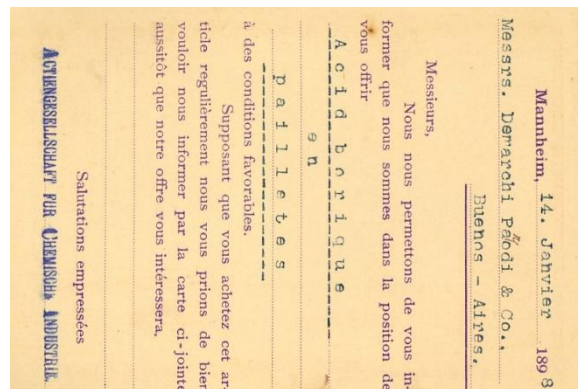 Mannheim, 14. Janvier 1898
Messrs. Demarchi Parodi & Co.,
Buenos - Aires.
Messieurs,
Nous nous permettons de vous in-
former que nous sommes dans la position de
vous offrir
Acid borique
en
paillettes
à des conditions favorables.
Supposant que vous achetez cet ar-
ticle regulièrement nous vous prions de bien
vouloir nous informer par la carte ci-jointe
aussitôt que notre offre vous intéressera.
Salutations empressées
ACTIENGESELLSCHAFT FÜR CHEMISCHE INDUSTRIE.